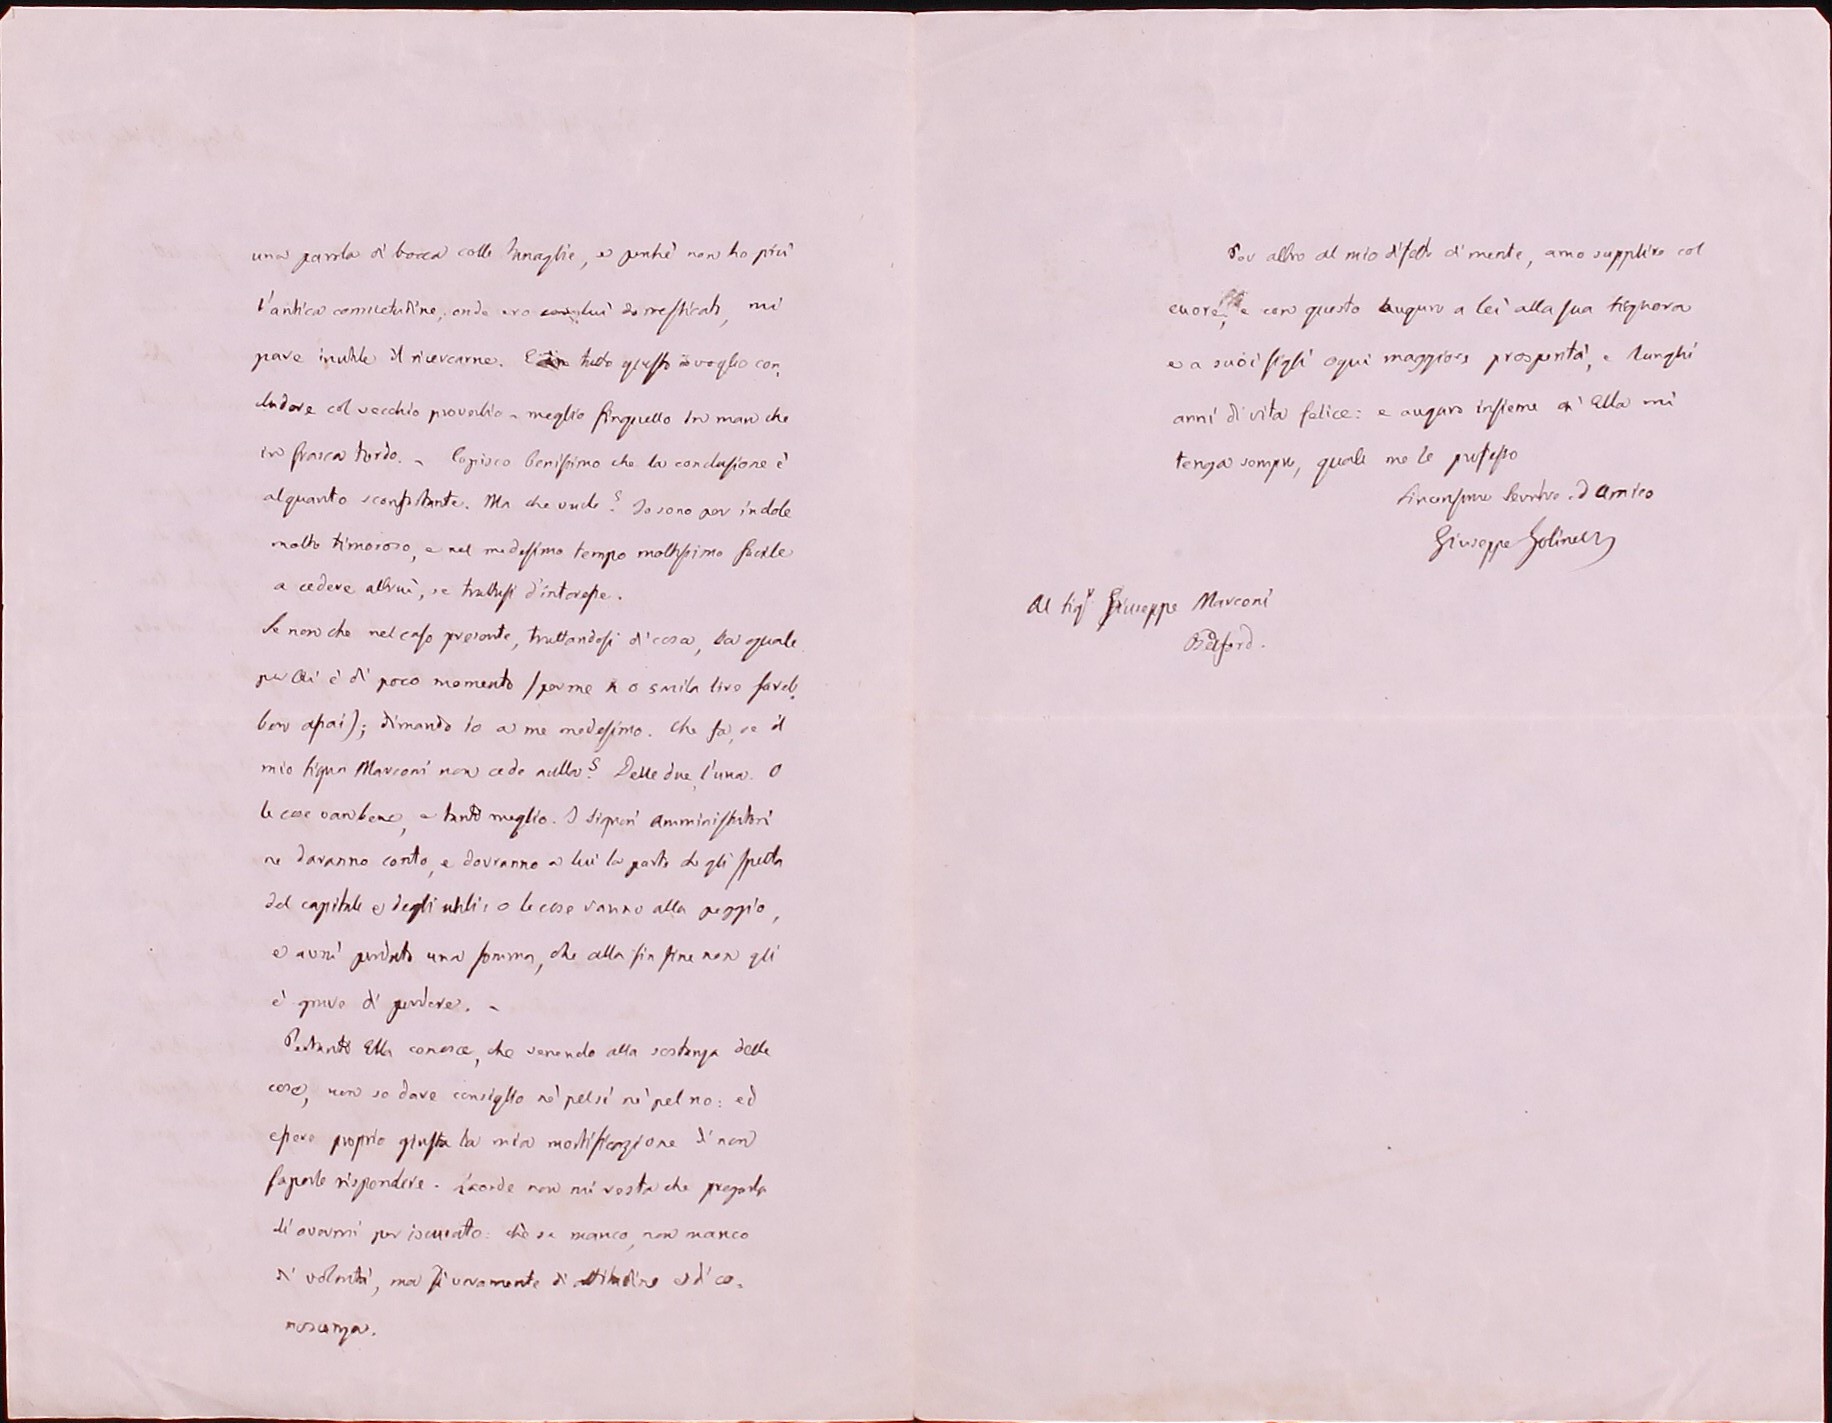 una parola di bocca colle tanaglie, e perchè non ho più
l'antica consuetudine, onde ero con lui domesticato, mi
pare inutile il ricercarne. E tutto questo io voglio con,
cludere col vecchio proverbio - meglio finguello in man che
in frasca tordo. - Capisco benissimo che la conclusione è
alquanto sconfortante. Ma che vuole? Io sono per indole
molto timoroso, e nel medesimo tempo moltissimo facile
a cedere altrui, se trattisi d'interesse.
Se non che nel caso presente, trattandosi di cosa, la quale
per Lei è di poco momento (per me 5 mila lire sareb,
ber assai); dimando io a me medesimo. Che fa, se il
mio Signor Marconi non cede nulla? Delle due, l'una. O
le cose van bene, e tanto meglio. I Signori amministratori
ne daranno conto, e dovranno a lui la parte che gli spetta
del capitale e degli utili: o le cose vanno alla peggio,
e avrà perduto una somma, che alla fin fine non gli
è grave di perdere. -
Pertanto Ella conosce, che venendo alla sostanza delle
cose, non so dare consiglio nè pel sì nè pel no: ed
essere proprio giusta la mia mortificazione di non
saperle rispondere. Laonde non mi resta che pregarla
di avermi per iscusato: chè se manco, non manco
di volontà, ma sì veramente di attitudine e di co,
noscenza.
Per altro al mio difetto di mente, amo supplire col
cuore, e con questo auguro a lei alla sua Signora
e a suoi figli ogni maggiore prosperità, e lunghi
anni di vita felice: e auguro insieme ch'Ella mi
tenga sempre, quale me le professo
Sincerissimo Servitore ed Amico
Giuseppe Golinelli
Al Sigr Giuseppe Marconi
Bedford.